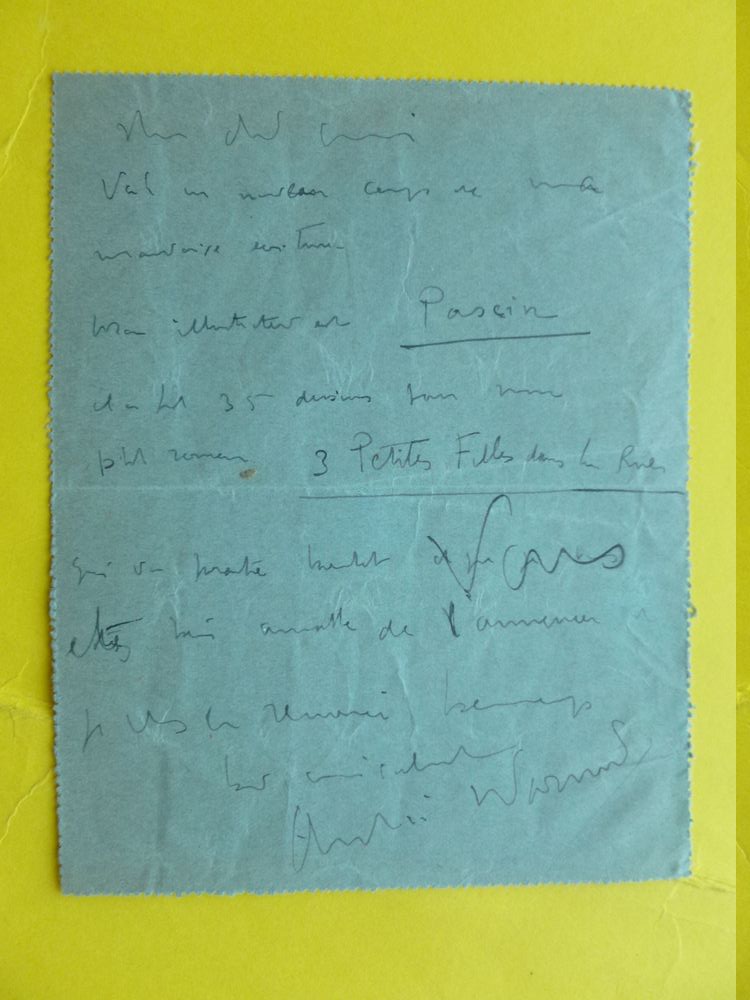 Mon cher ami
Voilà un nouveau coup de ma
mauvaise écriture
Mon illustrateur est Pascin
il a fait 35 dessins pour mon
petit roman 3 Petites Filles dans la Rue
qui va paraître bientôt
de l'annoncer
je vous en remercie beaucoup
bien amicalement
André Warnod